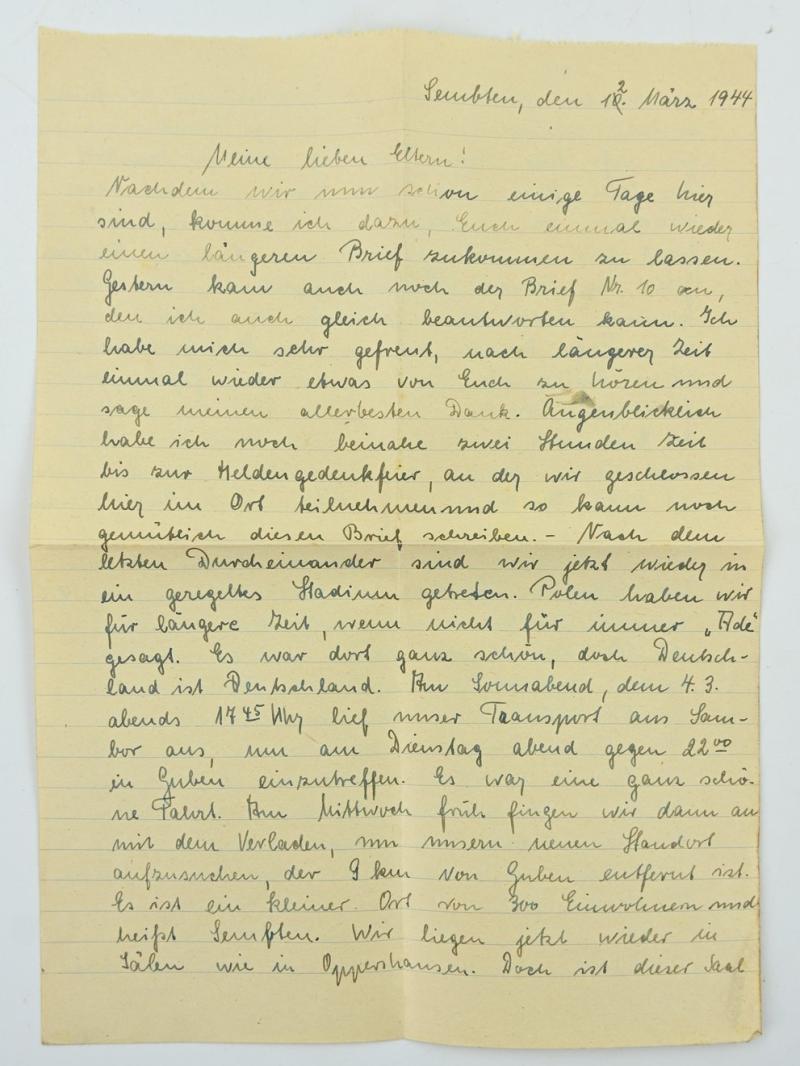 Sembten, den 12. März 1944
Meine lieben Eltern!
Nachdem wir nun schon einige Tage hier
sind, komme ich dazu, Euch einmal wieder
einen längeren Brief zukommen zu lassen.
Gestern kam auch noch der Brief Nr. 10 an,
den ich auch gleich beantworten kann. Ich
habe mich sehr gefreut, nach längerer Zeit
einmal wieder etwas von Euch zu hören und
sage meinen allerbesten Dank. Augenblicklich
habe ich noch beinahe zwei Stunden Zeit
bis zur Heldengedenkfeier, an der wir geschlossen
hier im Ort teilnehmen und so kann noch
gemütlich diesen Brief schreiben. – Nach dem
letzten Durcheinander sind wir jetzt wieder in
ein geregeltes Stadium getreten. Polen haben wir
für längere Zeit, wenn nicht für immer „Ade“
gesagt. Es war dort ganz schön, doch Deutsch-
land ist Deutschland. Am Sonnabend, dem 4.3.
abends 17 45 Uhr lief unser Transport aus Sam-
bor aus, um am Dienstag abend gegen 22 00
in Guben einzutreffen. Es war eine ganz schö-
ne Fahrt. Am Mittwoch früh fingen wir dann an
mit dem Verladen, um unsern neuen Standort
aufzusuchen, der 9 km von Guben entfernt ist.
Es ist ein kleiner Ort von 300 Einwohnern und
heißt Sembten. Wir liegen jetzt wieder in
Sälen wie in Oppershausen. Doch ist dieser Saal